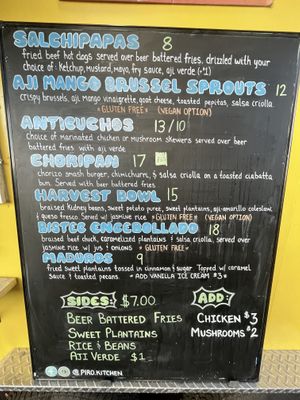 SALCHIPAPAS 8
fried beef hot dogs served over beer battered fries, drizzled with your
choice of: Ketchup, mustard, mayo, fry sauce, aji verde (+$1)
AJI MANGO BRUSSEL SPROUTS 12
crispy brussels, aji mango vinaigrette, goat cheese, toasted pepitas, salsa criolla.
*GLUTEN FREE* (VEGAN OPTION)
ANTICUCHOS 13/10
Choice of marinated chicken or mushroom skewers served over beer
battered fries with aji verde.
CHORIPAN 17
chorizo smash burger, chimichurri, & salsa criolla on a toasted ciabatta
bun. Served with beer battered fries.
HARVEST BOWL 15
braised kidney beans, sweet potato puree, sweet plantains, aji-amarillo coleslaw,
& queso fresco. Served w/ jasmine rice *GLUTEN FREE* (VEGAN OPTION)
BISTEC ENCEBOLLADO 18
braised beef chuck, caramelized plantains & salsa criolla, served over
jasmine rice w/ jus & onions *GLUTEN FREE*
MADUROS 9
fried sweet plantains tossed in cinnamon & sugar. Topped w/ caramel
sauce & toasted pecans. * ADD VANILLA ICE CREAM $3 *
SIDES: $7.00
BEER BATTERED FRIES
SWEET PLANTAINS
RICE & BEANS
AJI VERDE $1
ADD:
CHICKEN $3
MUSHROOMS $2
@PIRO.KITCHEN